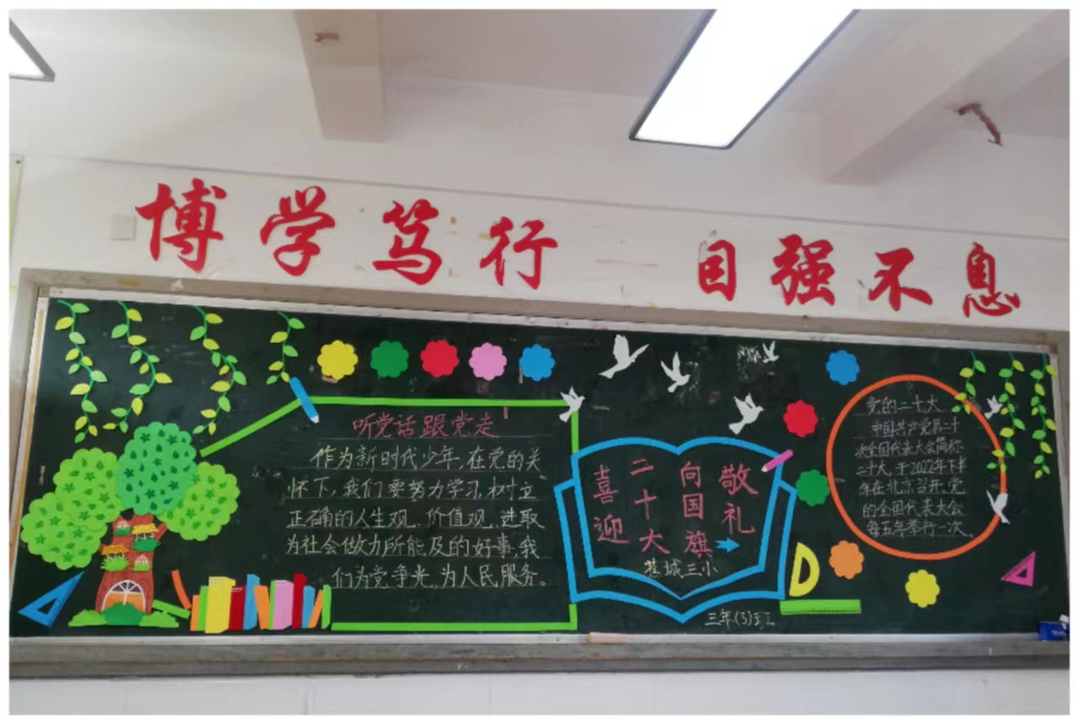 博学笃行 目强不息
听党话跟党走
作为新时代少年,在党的关
怀下,我们要努力学习,树立
正确的人生观、价值观,进取
为社会做力所能及的好事,我
们为党争光,为人民服务。
喜迎
二十大
向国旗
敬礼
城三小
三年(3)班
党的二十大
中国共产党第二十
次全国代表大会简称
二十大,于2022年下半
年在北京召开,党
的全国代表大会
每五年举行一次。